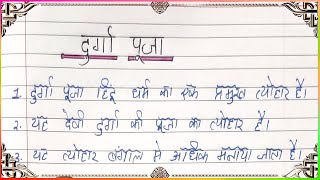 दुर्गा पूजा
1. दुर्गा पूजा हिंदू धर्म का एक प्रमुख त्योहार है।
2. यह देवी दुर्गा की पूजा का त्योहार है।
3. यह त्योहार बंगाल में अधिक मनाया जाता है।